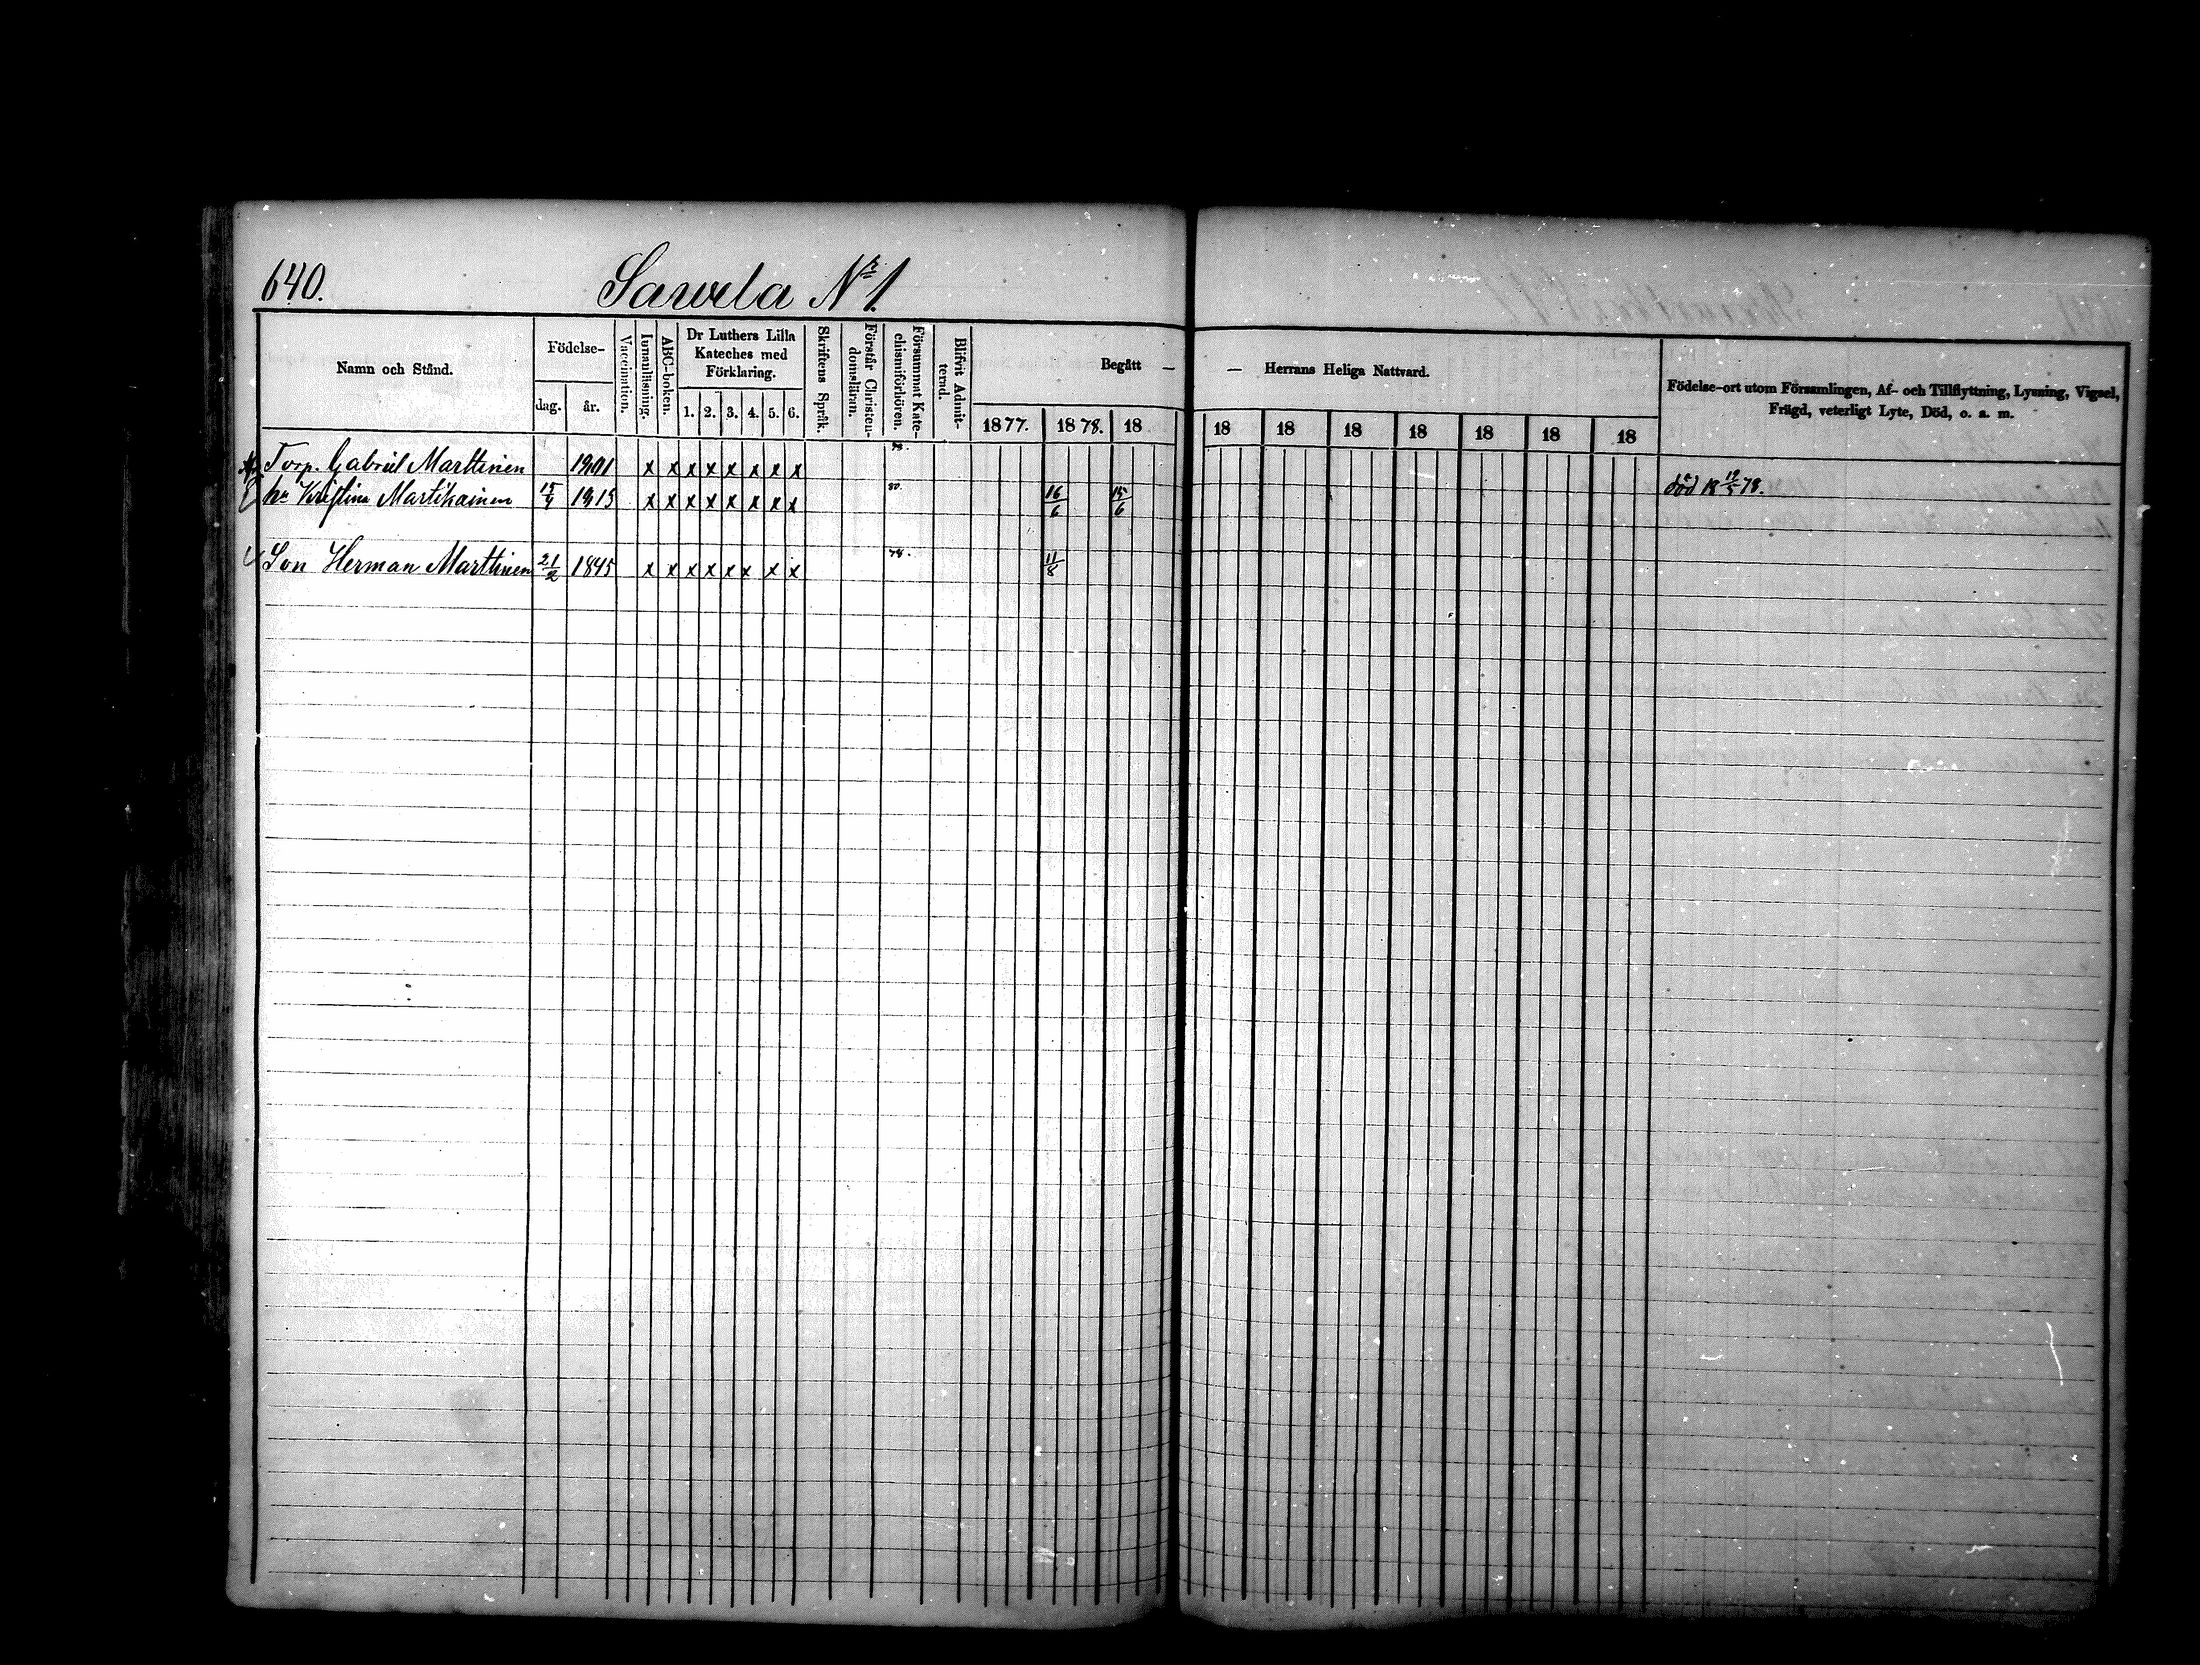 640.
Sawela Nr 1.
Namn och Stånd.
Födelse-
dag.
år.
Vaccination.
Innanläsning.
ABC-boken.
Dr Luthers Lilla
Kateches med
Förklaring.
1. 2. 3. 4. 5. 6.
Skriftens Språk.
Förstår Christen-
domsläran.
Försummat Kate-
chismiförhören.
Blifvit Admit-
terad.
Begått —
— Herrans Heliga Nattvard.
1877. 1878. 18 18 18 18 18 18 18 18
Födelse-ort utom Församlingen, Af- och Tillflyttning, Lysning, Vigsel,
Frägd, veterligt Lyte, Död, o. a. m.
Torp. Gabriel Marttinen x x x x x x x x 78.
hu Kristina Martikainen x x x x x x x x 80. 16/6 15/6 död
Son Herman Marttinen 21/2 1845 x x x x x x x x 78. 11/8